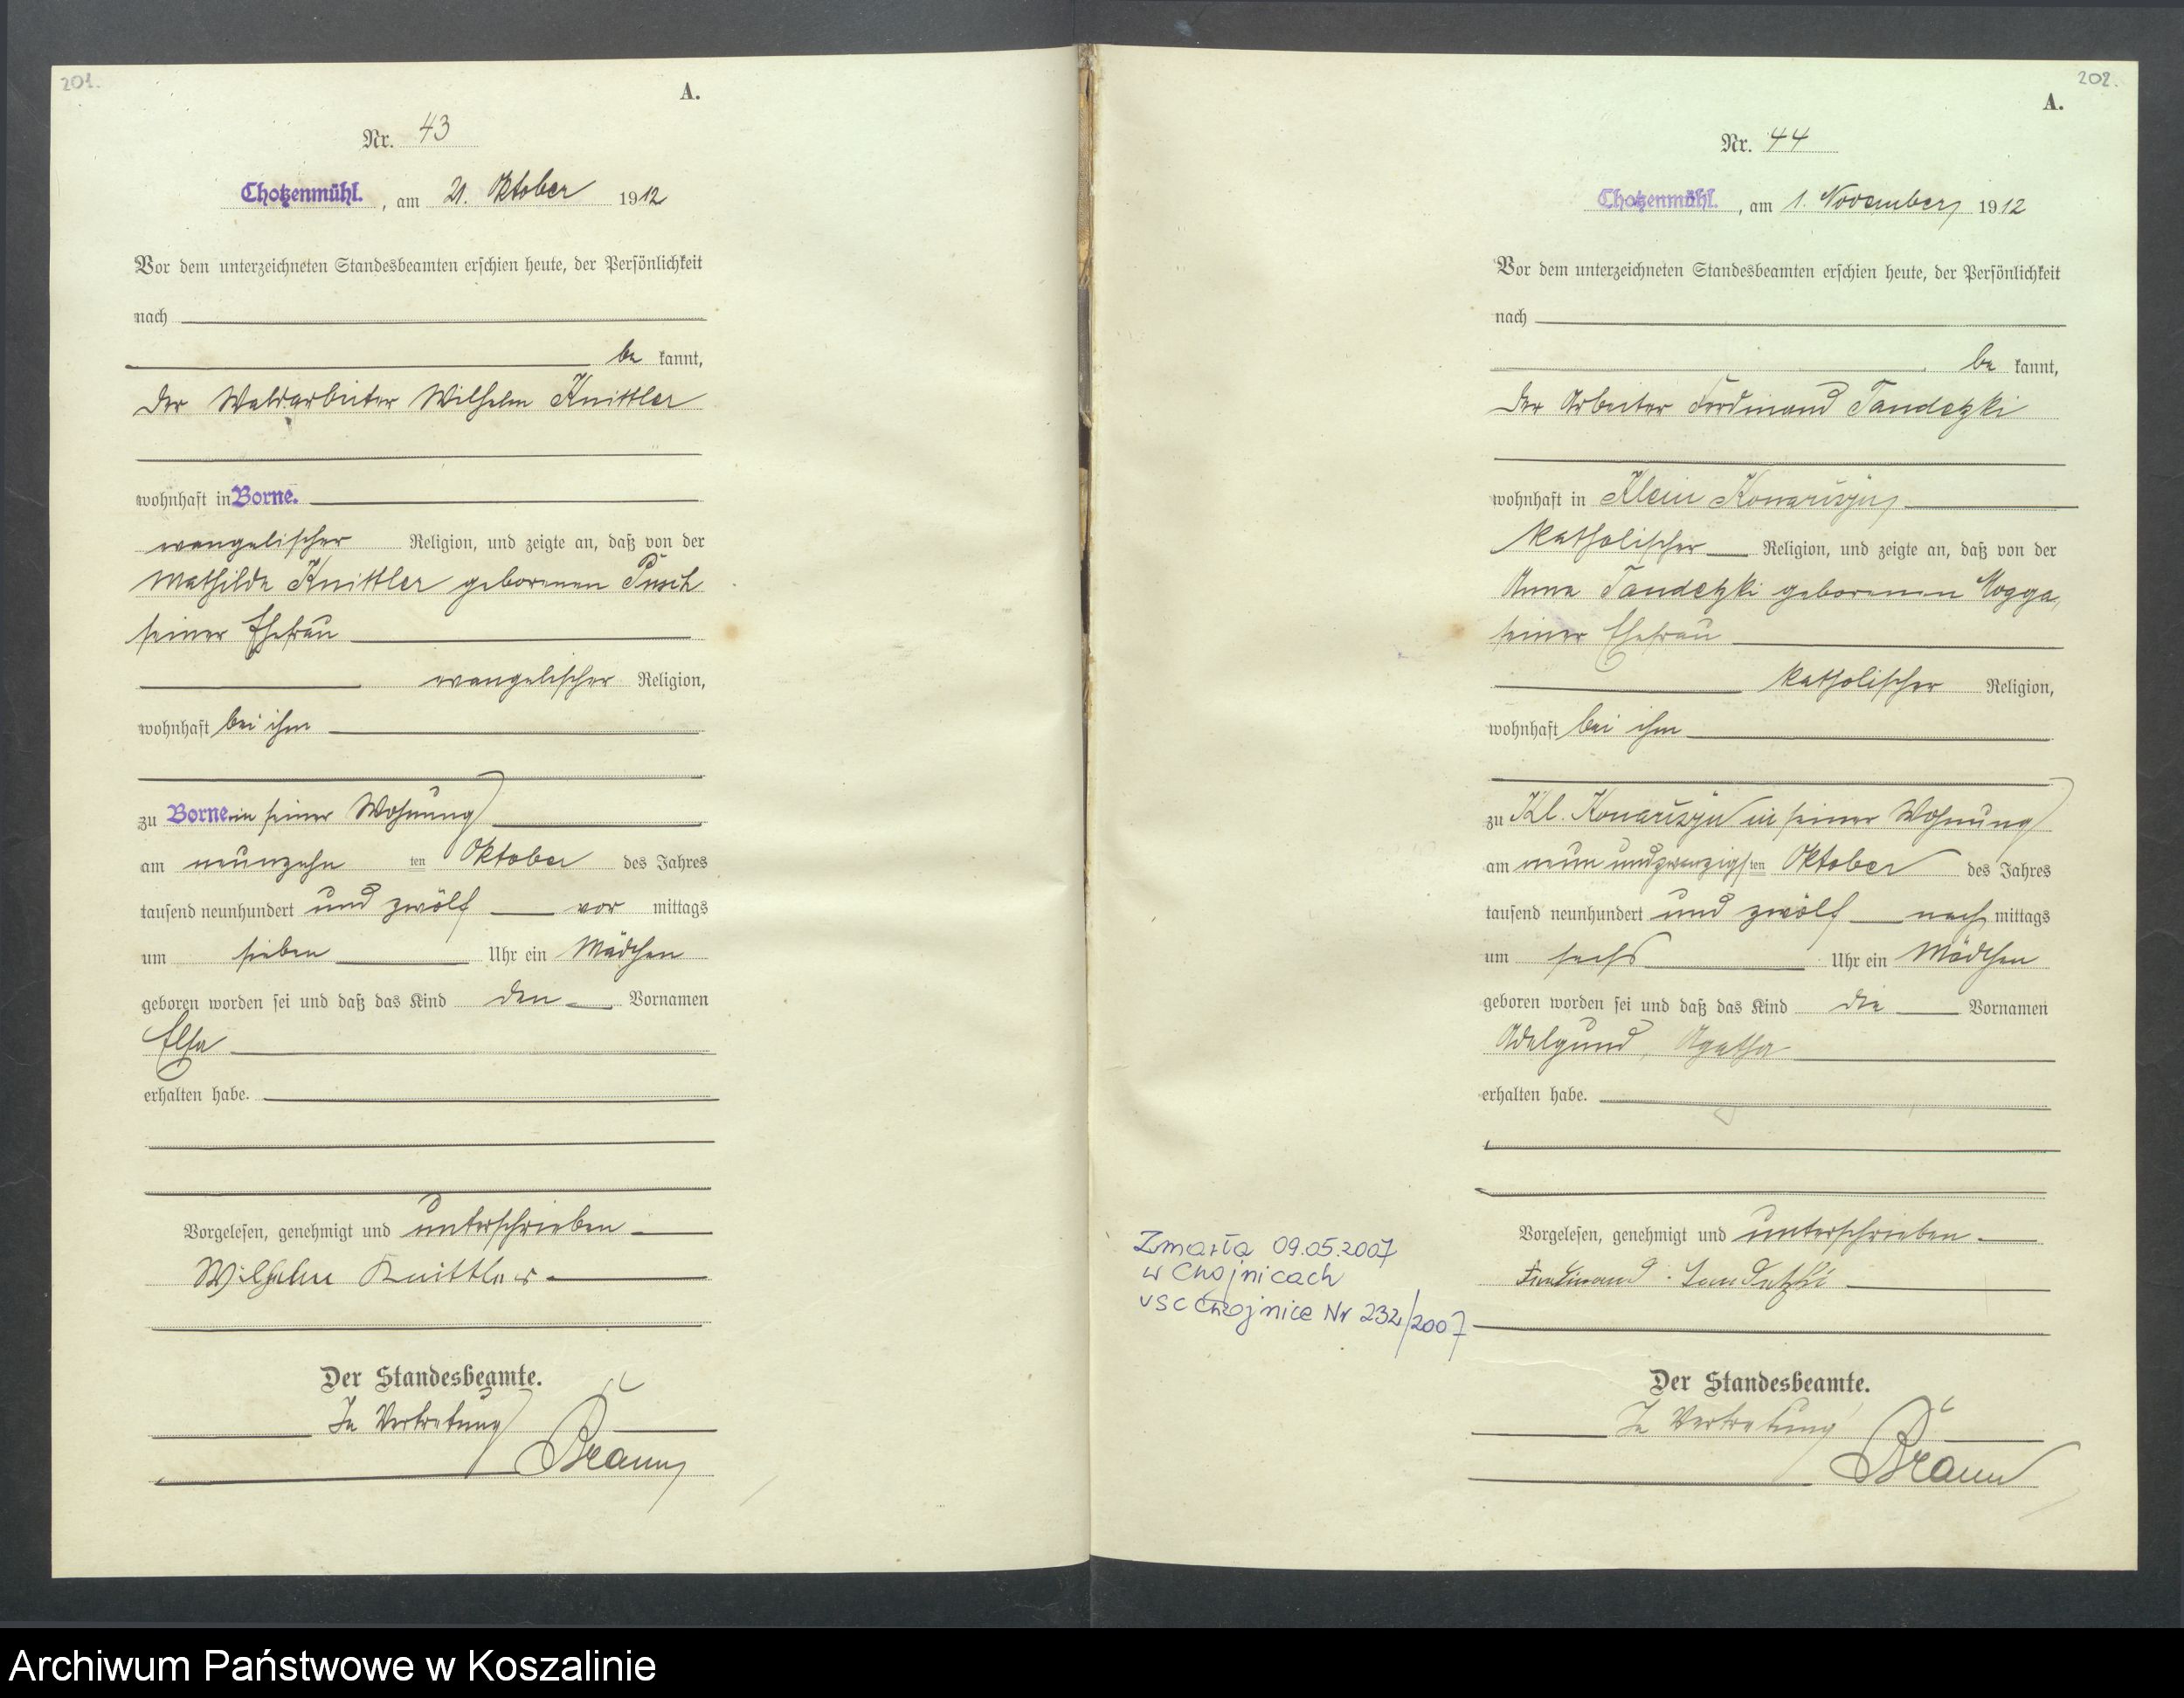 201.
A.
Nr. 43
Chotzenmühl. , am 21. Oktober 1912
Vor dem unterzeichneten Standesbeamten erschien heute, der Persönlichkeit
nach
be kannt,
der Waldarbeiter Wilhelm Knittler
wohnhaft in Borne.
evangelischer Religion, und zeigte an, daß von der
Mathilde Knittler geborenen Pusch
seiner Ehefrau
evangelischer Religion,
wohnhaft bei ihm
zu Borne in seiner Wohnung
am neunzehn ten Oktober des Jahres
tausend neunhundert und zwölf vor mittags
um sieben Uhr ein Mädchen
geboren worden sei und daß das Kind den Vornamen
Elsa
erhalten habe.
Vorgelesen, genehmigt und unterschrieben
Wilhelm Knittler
Der Standesbeamte.
In Vertretung
Braun
202.
A.
Nr. 44
Chotzenmühl. , am 1. November 1912
Vor dem unterzeichneten Standesbeamten erschien heute, der Persönlichkeit
nach
be kannt,
der Arbeiter Ferdinand Tandetzki
wohnhaft in Klein Konarczyn
katholischer Religion, und zeigte an, daß von der
Anna Tandetzki geborenen Rogga,
seiner Ehefrau
katholischer Religion,
wohnhaft bei ihm
zu Kl. Konarczyn in seiner Wohnung
am neun und zwanzigs ten Oktober des Jahres
tausend neunhundert und zwölf nach mittags
um sechs Uhr ein Mädchen
geboren worden sei und daß das Kind die Vornamen
Adelgund, Agatha
erhalten habe.
Vorgelesen, genehmigt und unterschrieben
Ferdinand Tandetzki
Der Standesbeamte.
In Vertretung
Braun
Zmarła 09.05.2007
w Chojnicach
USC Chojnice Nr 232/2007
Archiwum Państwowe w Koszalinie